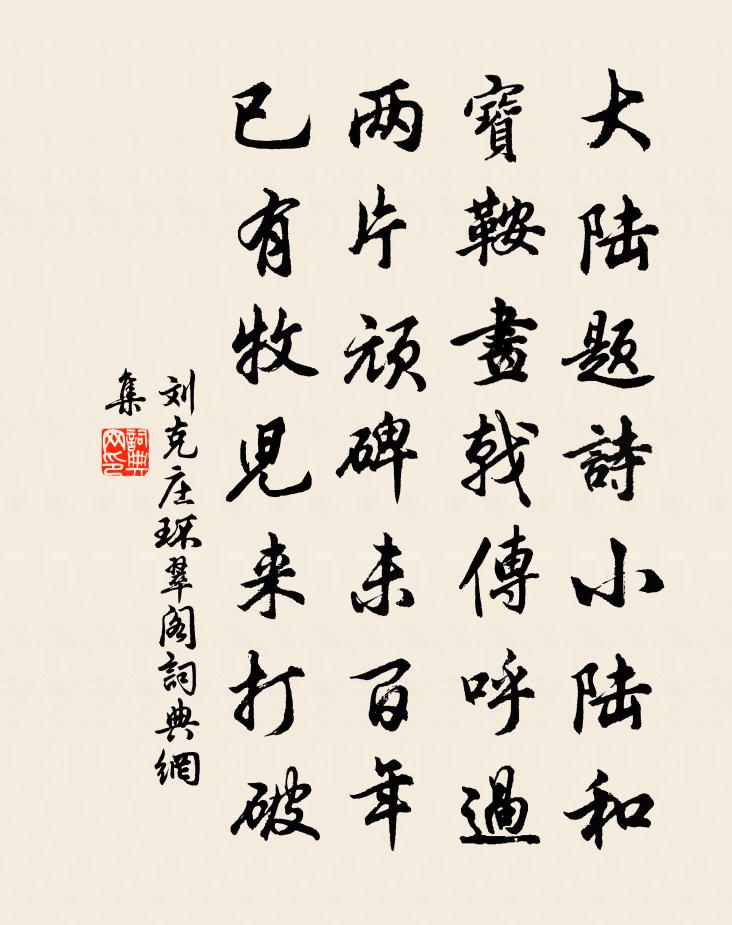 大陆题詩小陆和
寶鞍畫戟傳呼過
两片顽碑未百年
已有牧児来打破
刘克庄环翠阁詞典網
集
詞典
网印